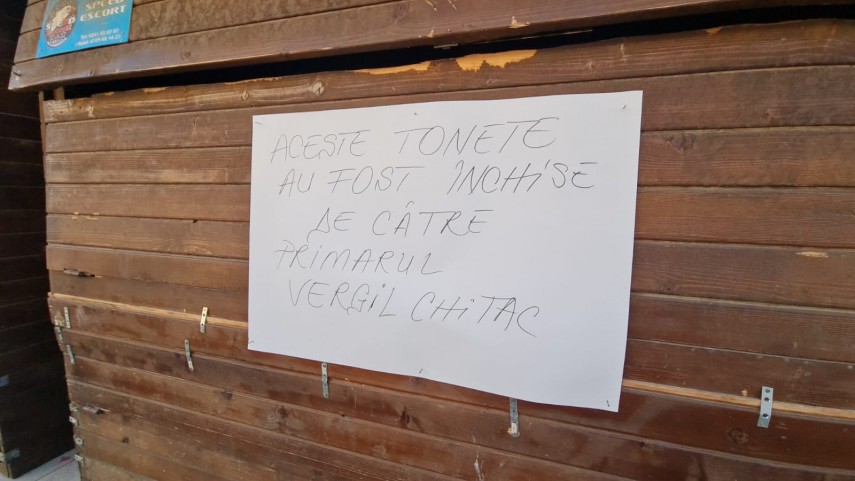 SPEED
ESCORT
ACESTE TONETE
AU FOST ÎNCHISE
DE CĂTRE
PRIMARUL
VERGIL CHITAC